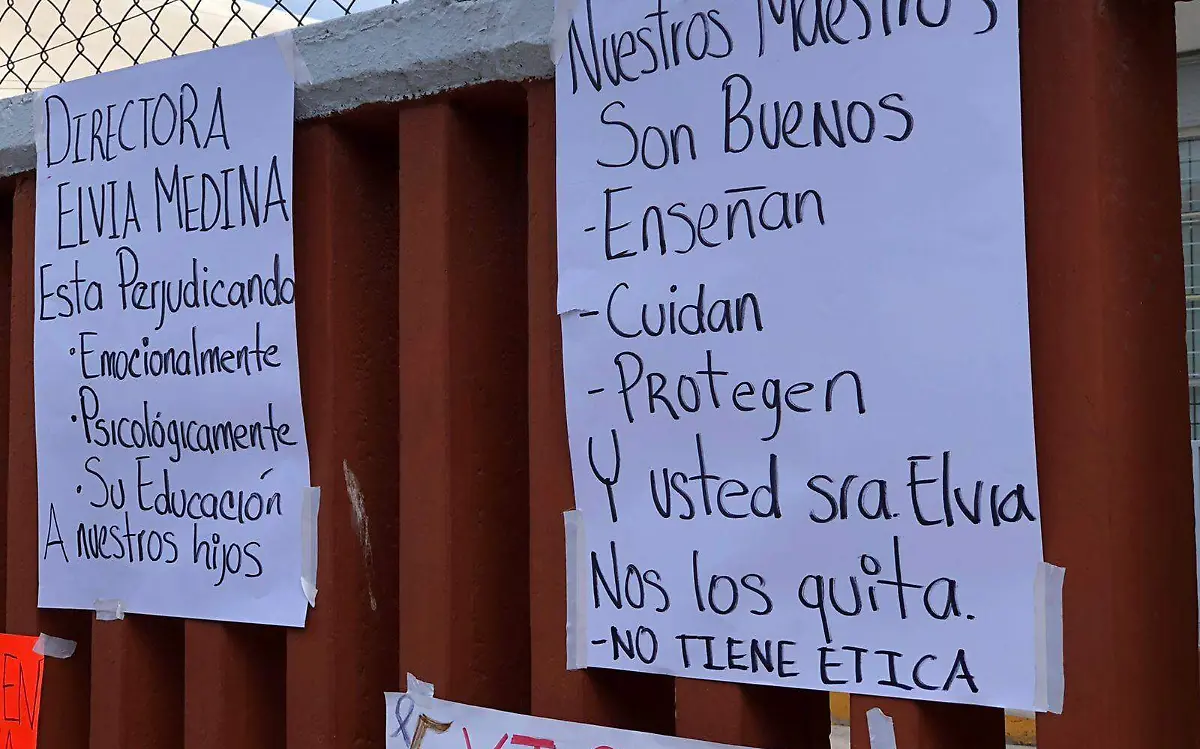 DIRECTORA
ELVIA MEDINA
Esta Perjudicando
· Emocionalmente
· Psicológicamente
· Su Educación
A nuestros hijos
Nuestros Maestros
Son BUENOS
- Enseñan
- Cuidan
- Protegen
Y usted sra. Elvia
Nos los quita.
- NO TIENE ETICA
EN